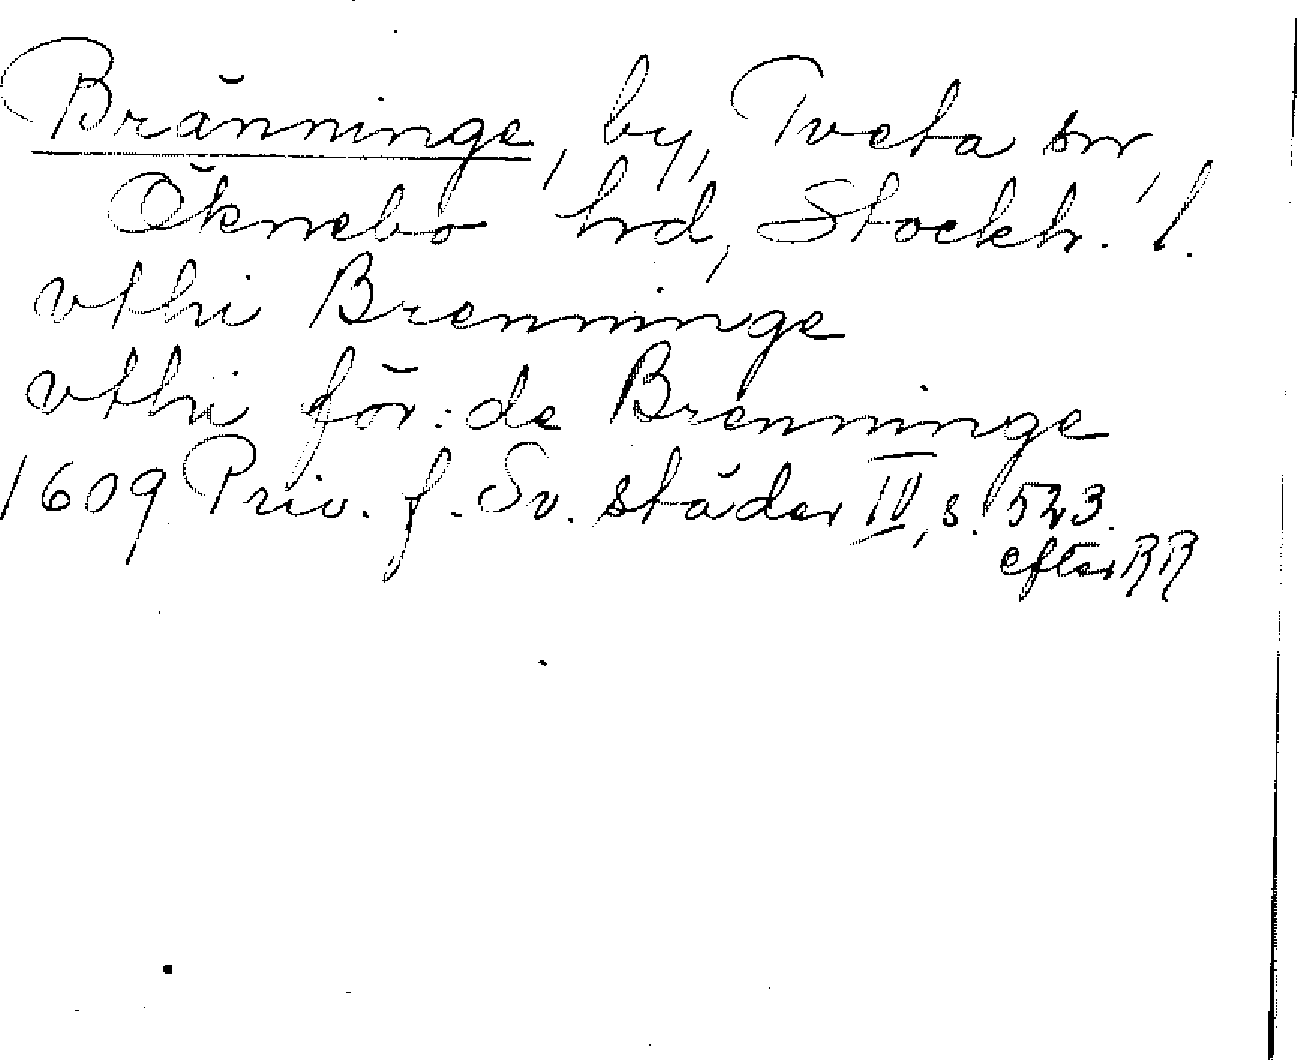 Bränninge, by, Tveta sn,
Öknebo hd, Stockh. l.
vthi Brenninge
vthi för:de Brenninge
1609 Priv. f. Sv. städer IV, s. 523.
efter RR